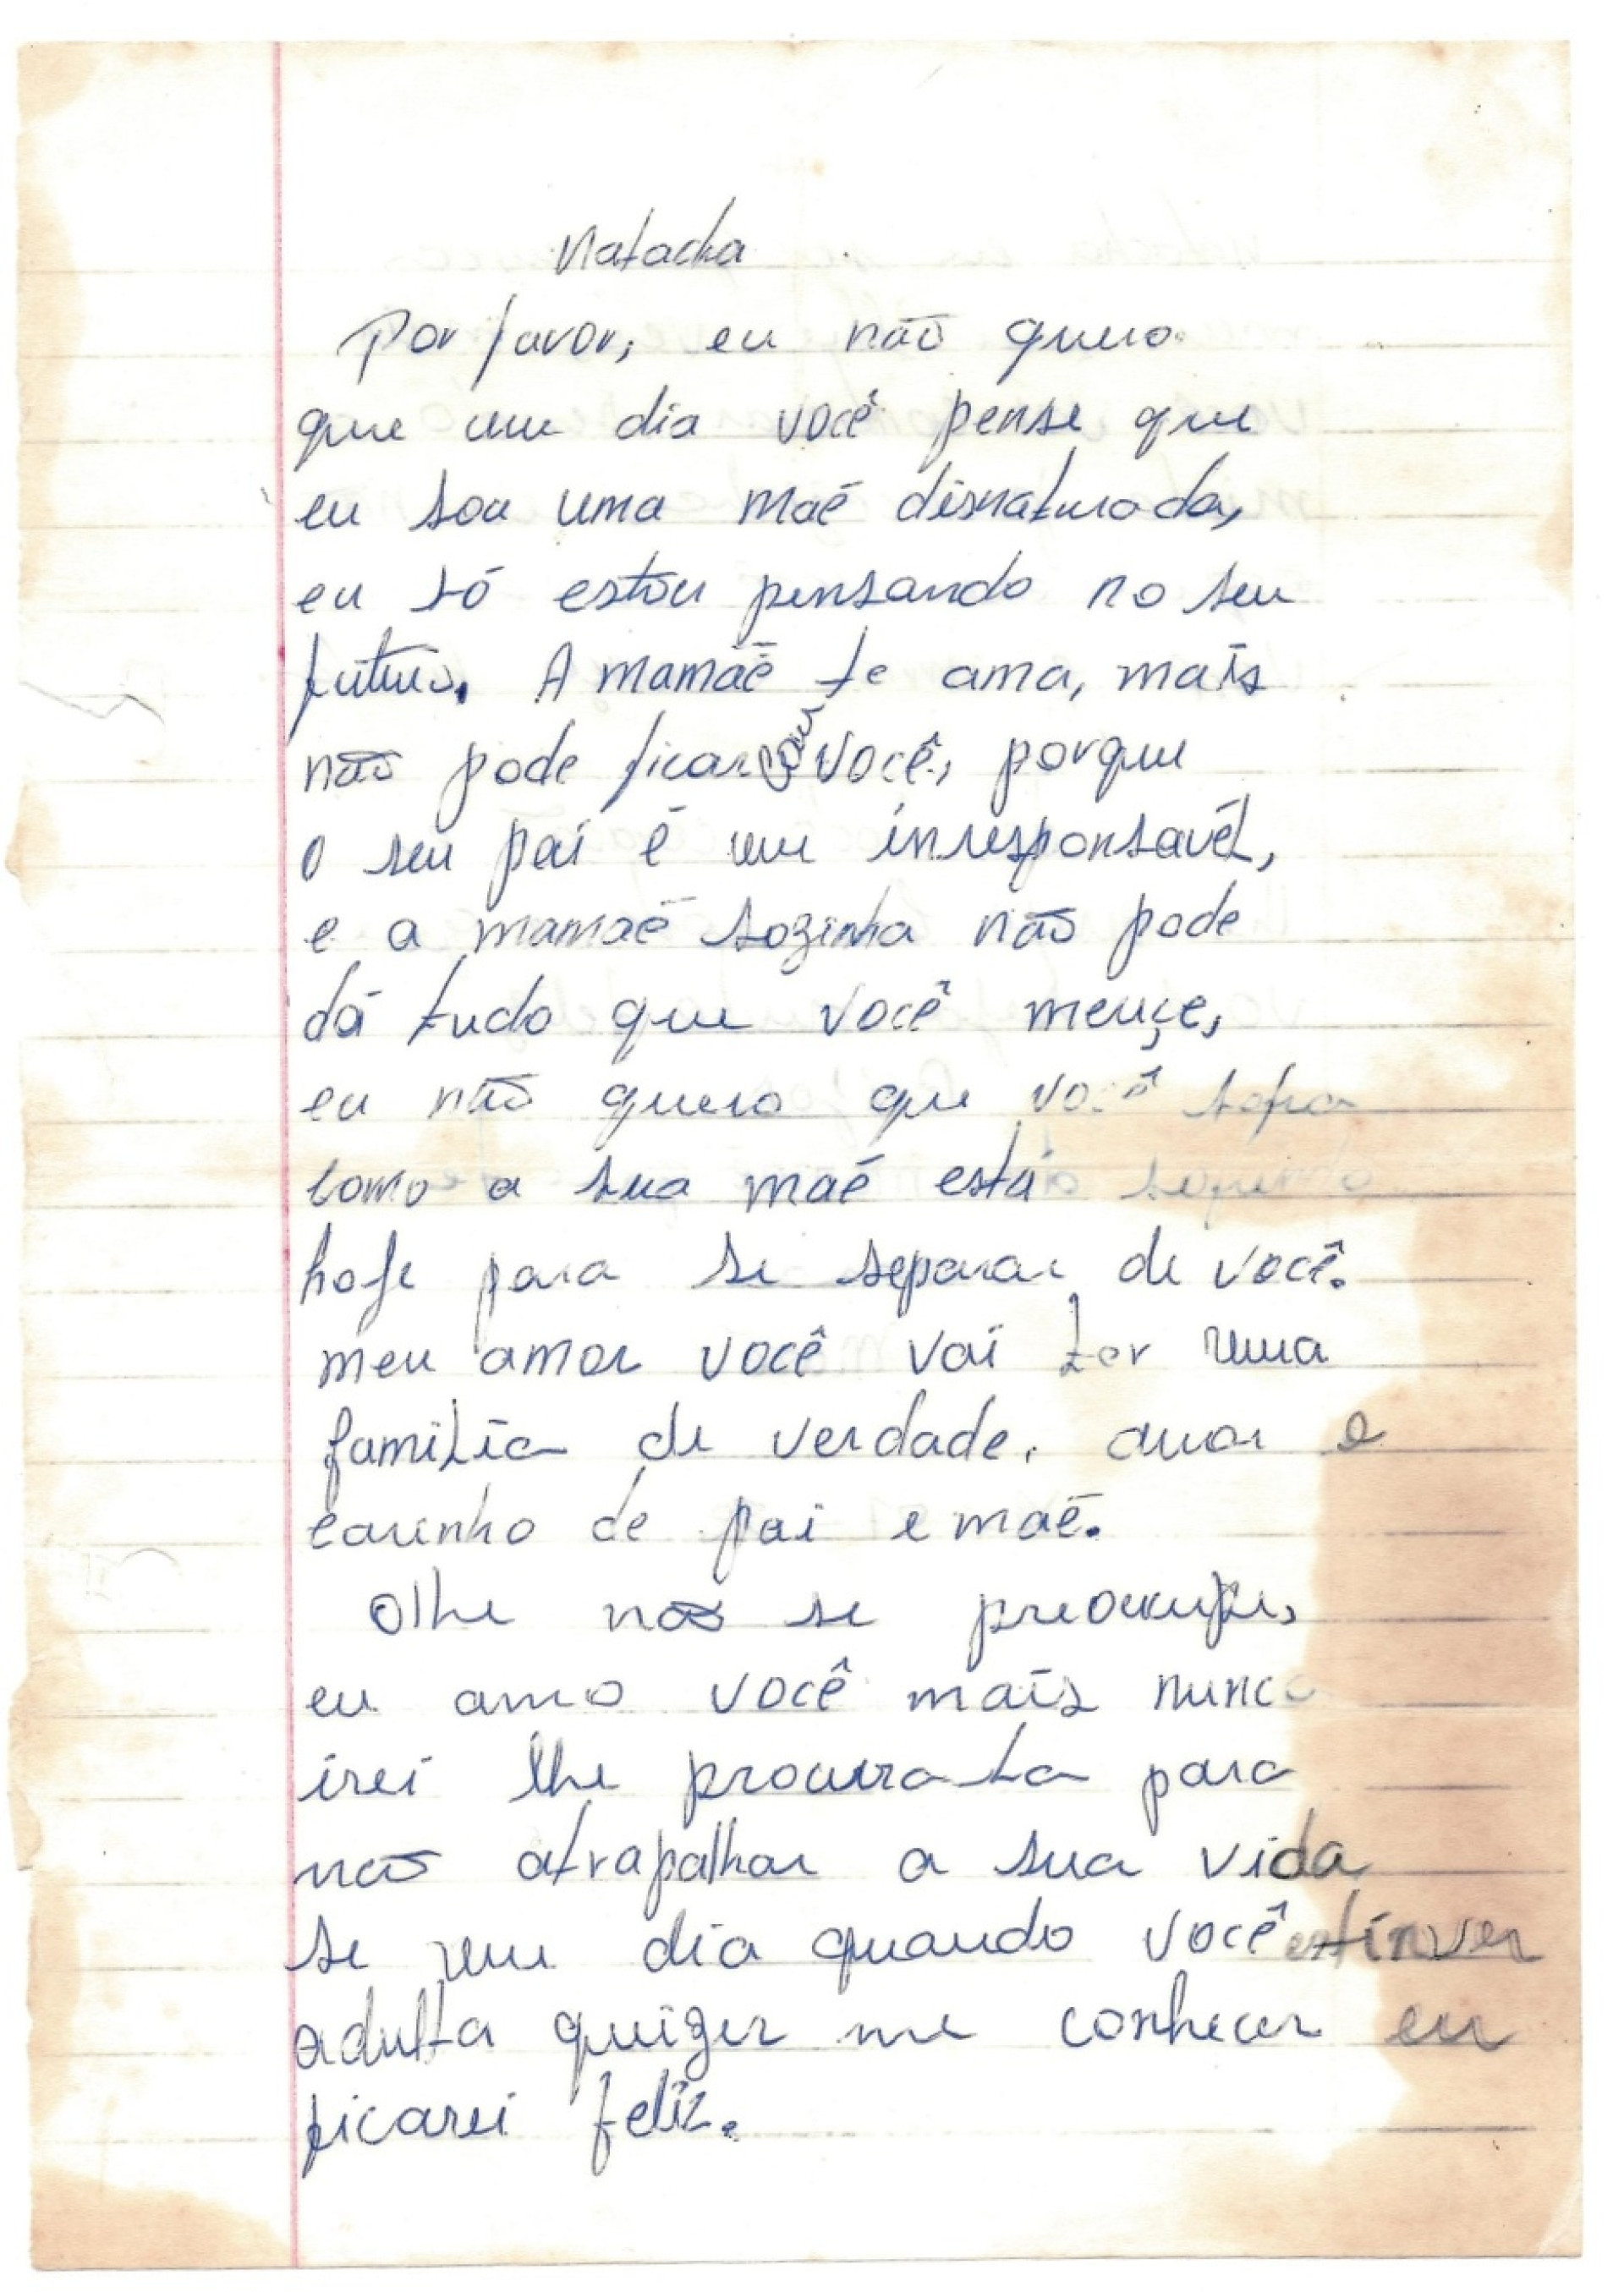 Natacha
Por favor, eu não quero
que um dia você pense que
eu sou uma maẽ disnaturada,
eu só estou pensando no seu
futuro. A mamaẽ te ama, mais
não pode ficar com você, porque
o seu pai é um inresponsavél,
e a mamaẽ sozinha não pode
dá tudo que você mereçe,
eu não quero que você sofra
como a sua maẽ está sofrendo
hoje para se separar de você.
meu amor você vai ter uma
familia de verdade. amor e
carinho de pai e maẽ.
Olhe não se preocupe,
eu amo você mais nunca
irei lhe procura-la para
não atrapalhar a sua vida
se um dia quando você estinver
adulta quizer me conhecer eu
ficarei feliz.